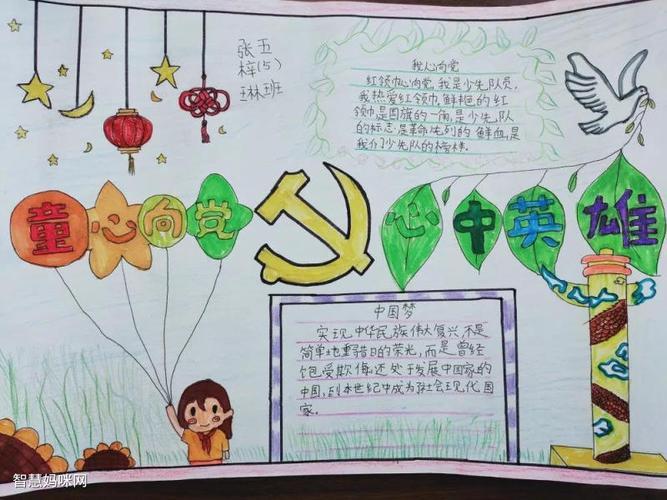 张 五
梓(5)
琳班
我心向党
红领巾心向党,我是少先队员,
我热爱红领巾,鲜艳的红
领巾是国旗的一角,是少先队
的标志,是革命先烈的鲜血,是
我们少先队的榜样.
童心向党
心中英雄
中国梦
实现中华民族伟大复兴,不是
简单地重昔日的荣光,而是曾经
饱受欺侮,还处于发展中国家的
中国,到本世纪中成为社会现代国
家.
智慧妈咪网